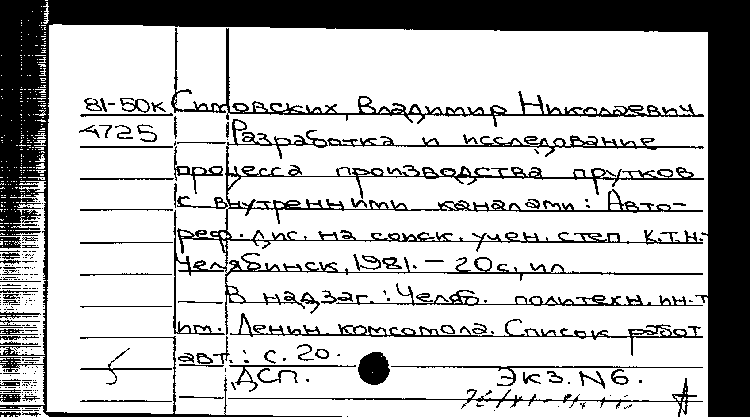 81-50к Ситовских, Владимир Николаевич
4725 Разработка и исследование
процесса производства прутков
с внутренними каналами: Авто-
реф. дис. на соиск. учен. степ. к.т.н.
Челябинск, 1981. – 20с, ил
В надзаг.: Челяб. политехн. ин-т
им. Ленин. комсомола. Список работ
авт.: с. 20.
5 ДСП. Экз. N6.